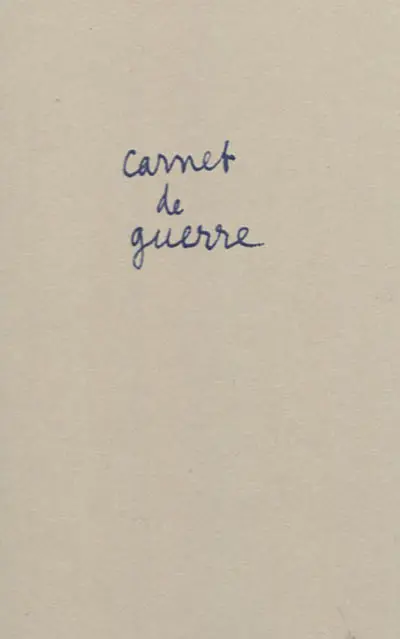 carnet
de
guerre